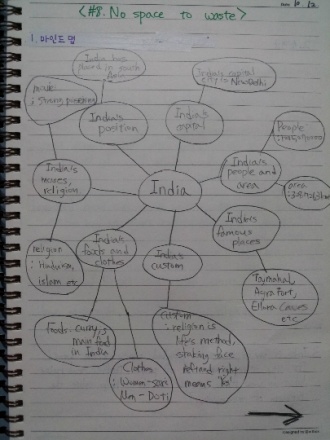 <#8. No space to waste>
1. 마인드 맵
India has
placed in south
India's capital
city is New Delhi
music
India's
position
India's
capital
People
India's
people and
area
area
India's
religion
India
India's
famous
places
religion
: Hinduism,
islam etc
India's
foods and
clothes
India's
custom
Tajmahal,
Agra Fort,
Ellora Caves
etc
Foods: curry is
main food
in India
Custom
: religion is
life's method,
shaking face
means "Yes"
Clothes
: Woman-Sari
Man-Doti